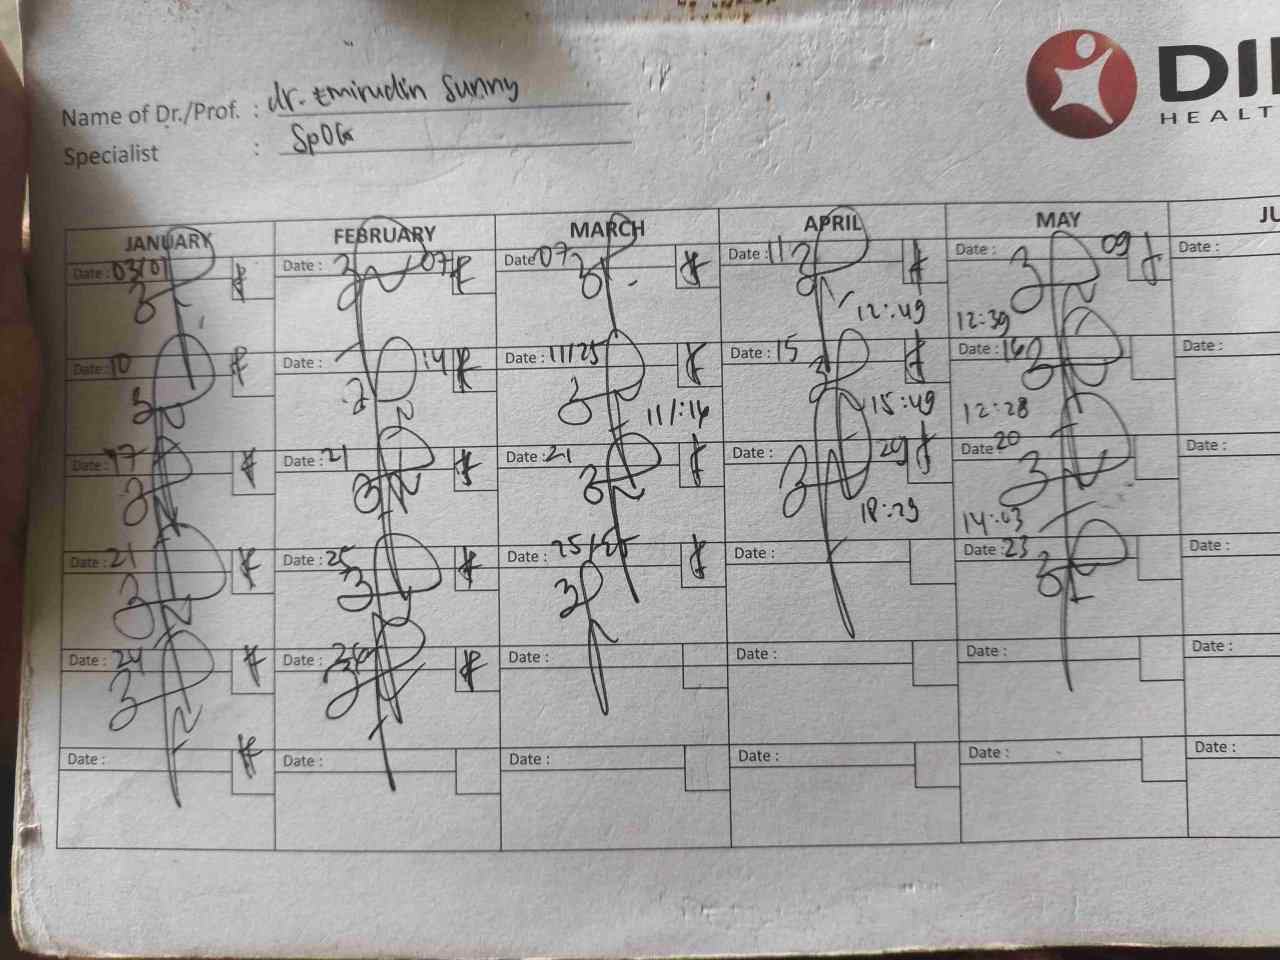 Name of Dr./Prof. : dr. Emirudin Sunny
Specialist : SpOG
DI
HEALT
JANUARY FEBRUARY MARCH APRIL MAY JU
Date : 03/01 Date : 07 Date 07 Date : 11 Date : 09 Date :
12:49 12:39
Date : 10 Date : 14 Date : 11/25 Date : 15 Date : 16 Date :
11/:14 15:49 12:28
Date : 17 Date : 21 Date : 21 Date : 29 Date 20 Date :
18:29 14:03
Date : 21 Date : 25 Date : 25/ Date : Date : 23 Date :
Date : 24 Date : Date : Date : Date : Date :
Date : Date : Date : Date : Date : Date :